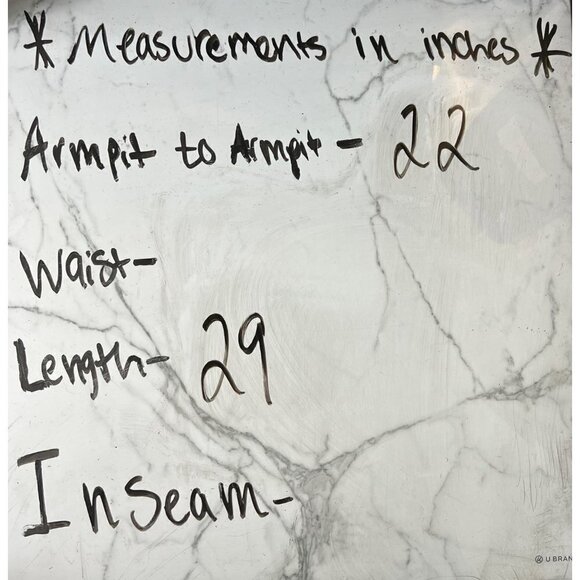 * Measurements in inches *
Armpit to Armpit - 22
Waist-
Length- 29
Inseam-
U BRAN